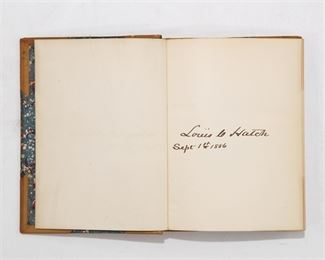 Louis C Hatch
Sept 1st 1886